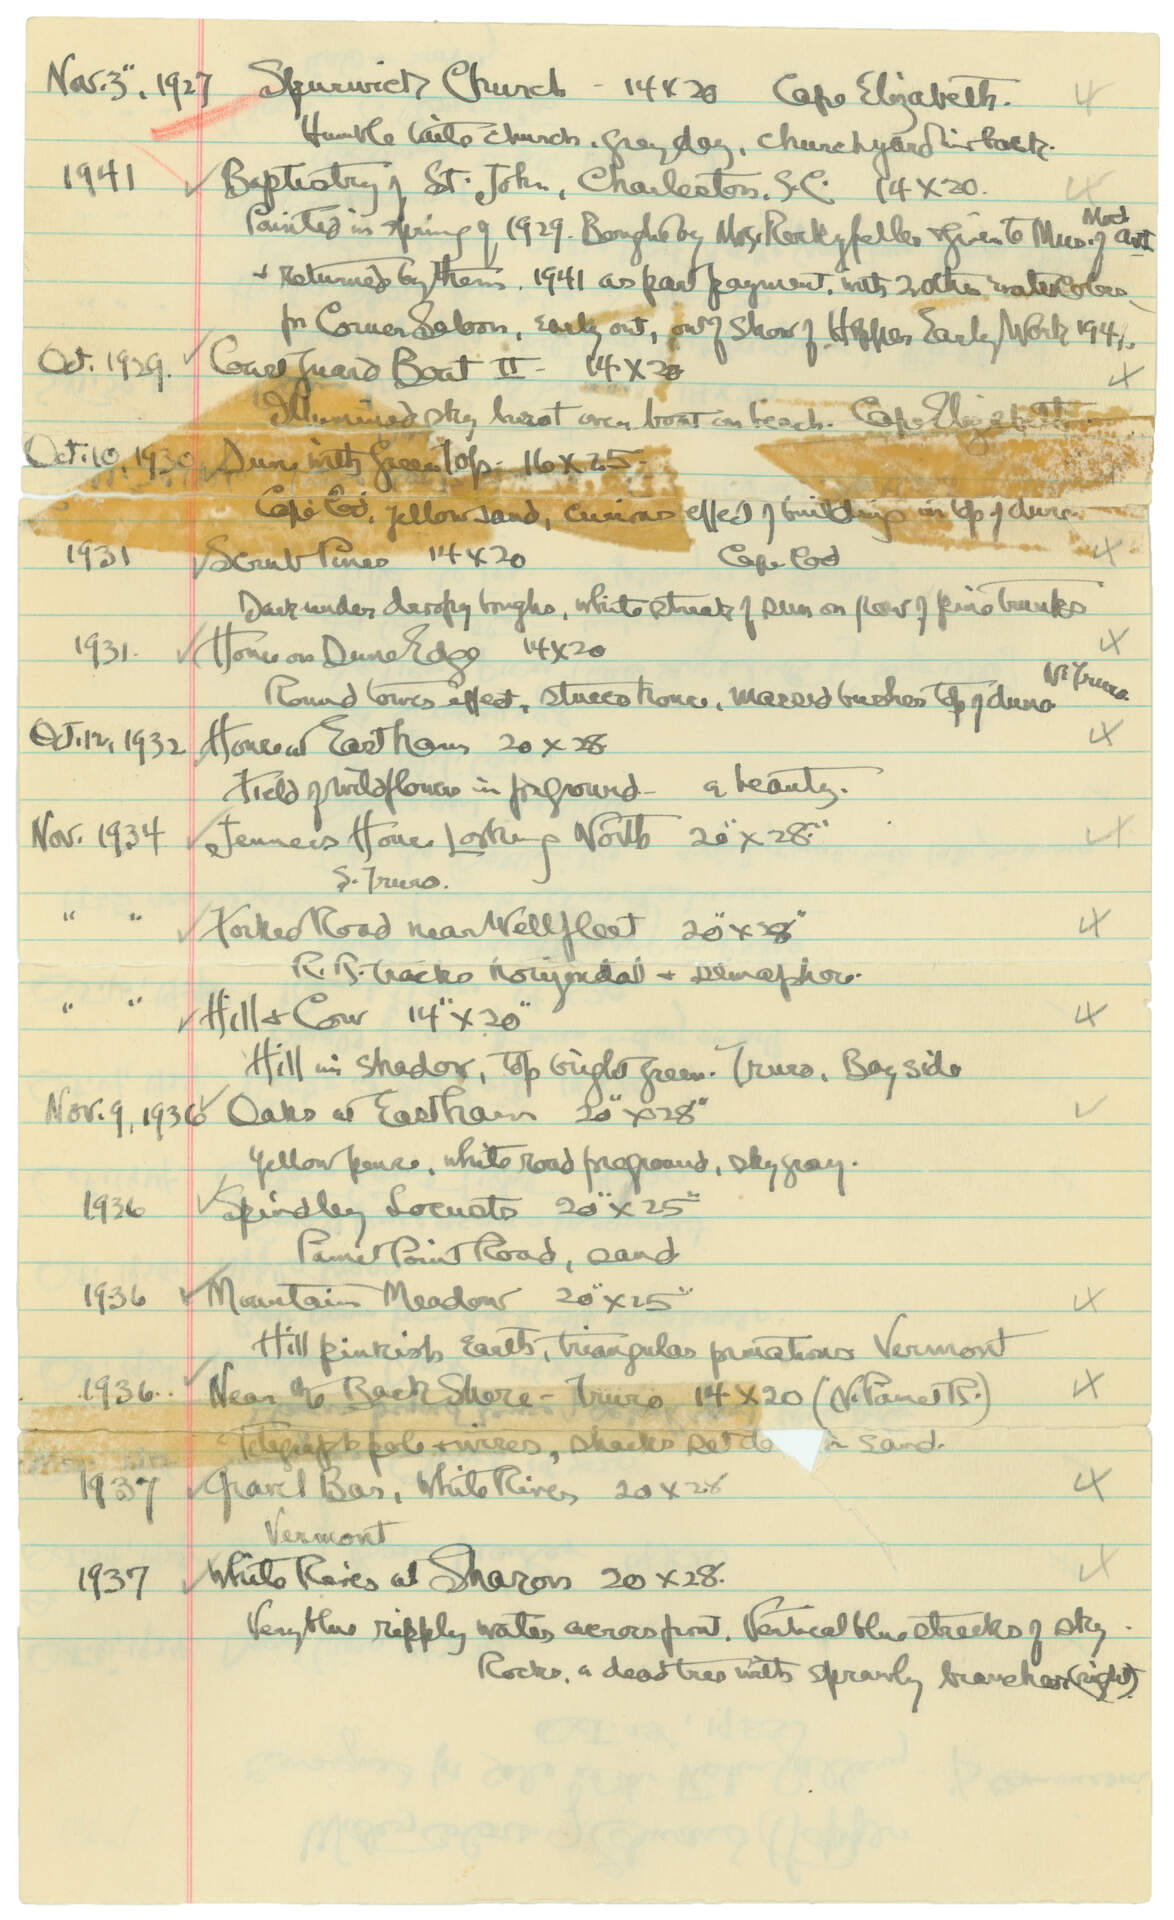 Nov. 3", 1927 Spurwich Church - 14 x 20 Cape Elizabeth.
Humble white church, grey day, churchyard in back.
1941 ✓ Baptistry of St. John, Charleston, S.C. 14 x 20.
Painted in spring of 1929. Bought by Mrs. Rockyfeller & given to Mus. of Mod. Art
& returned by them. 1941 as part payment, with 2 other water colors
for Corner Saloon, early out, out of show of Hopper Early Work 1941.
Oct. 1929. ✓ Coast Guard Boat II - 14 x 20
Illumined sky burst over boat on beach. Cape Elizabeth.
Oct. 10, 1930 Dune with Green Top - 16 x 25 -
Cape Cod, yellow sand, curious effect of buildings in top of dune.
1931 ✓ Scrub Pines 14 x 20 Cape Cod
Dark under droopy boughs, white streak of sun on floor of pine trunks
1931. ✓ House on Dune Edge 14 x 20
Round tower effect, stucco house, massed bushes top of dune N. Truro
Oct. 12, 1932 House at Eastham 20 x 28
Field of wildflowers in foreground - a beauty.
Nov. 1934 ✓ Jenness House Looking North 20" x 28"
S. Truro.
" " ✓ Forked Road near Wellfleet 20" x 28"
R. R. tracks horizondal + semaphore.
" " ✓ Hill & Cow 14" x 20"
Hill in shadow, top bright green. Truro, Bay side
Nov. 9, 1936 ✓ Oaks at Eastham 20" x 28" ✓
Yellow fence, white road foreground, sky gray.
1936 ✓ Spindley Locusts 20" x 25"
Pamet Point Road, sand
1936 ✓ Mountain Meadow 20" x 25"
Hill pinkish earth, triangular formations Vermont
1936. ✓ Near the Back Shore - Truro 14 x 20 (N. Pamet R.)
Telegraph pole + wires, shacks set in sand.
1937 ✓ Gravel Bar, White River 20 x 28
Vermont
1937 ✓ White River at Sharon 20 x 28.
Very blue ripply water across front. Vertical blue streaks of sky.
Rocks, a dead tree with sprawly branches (right).